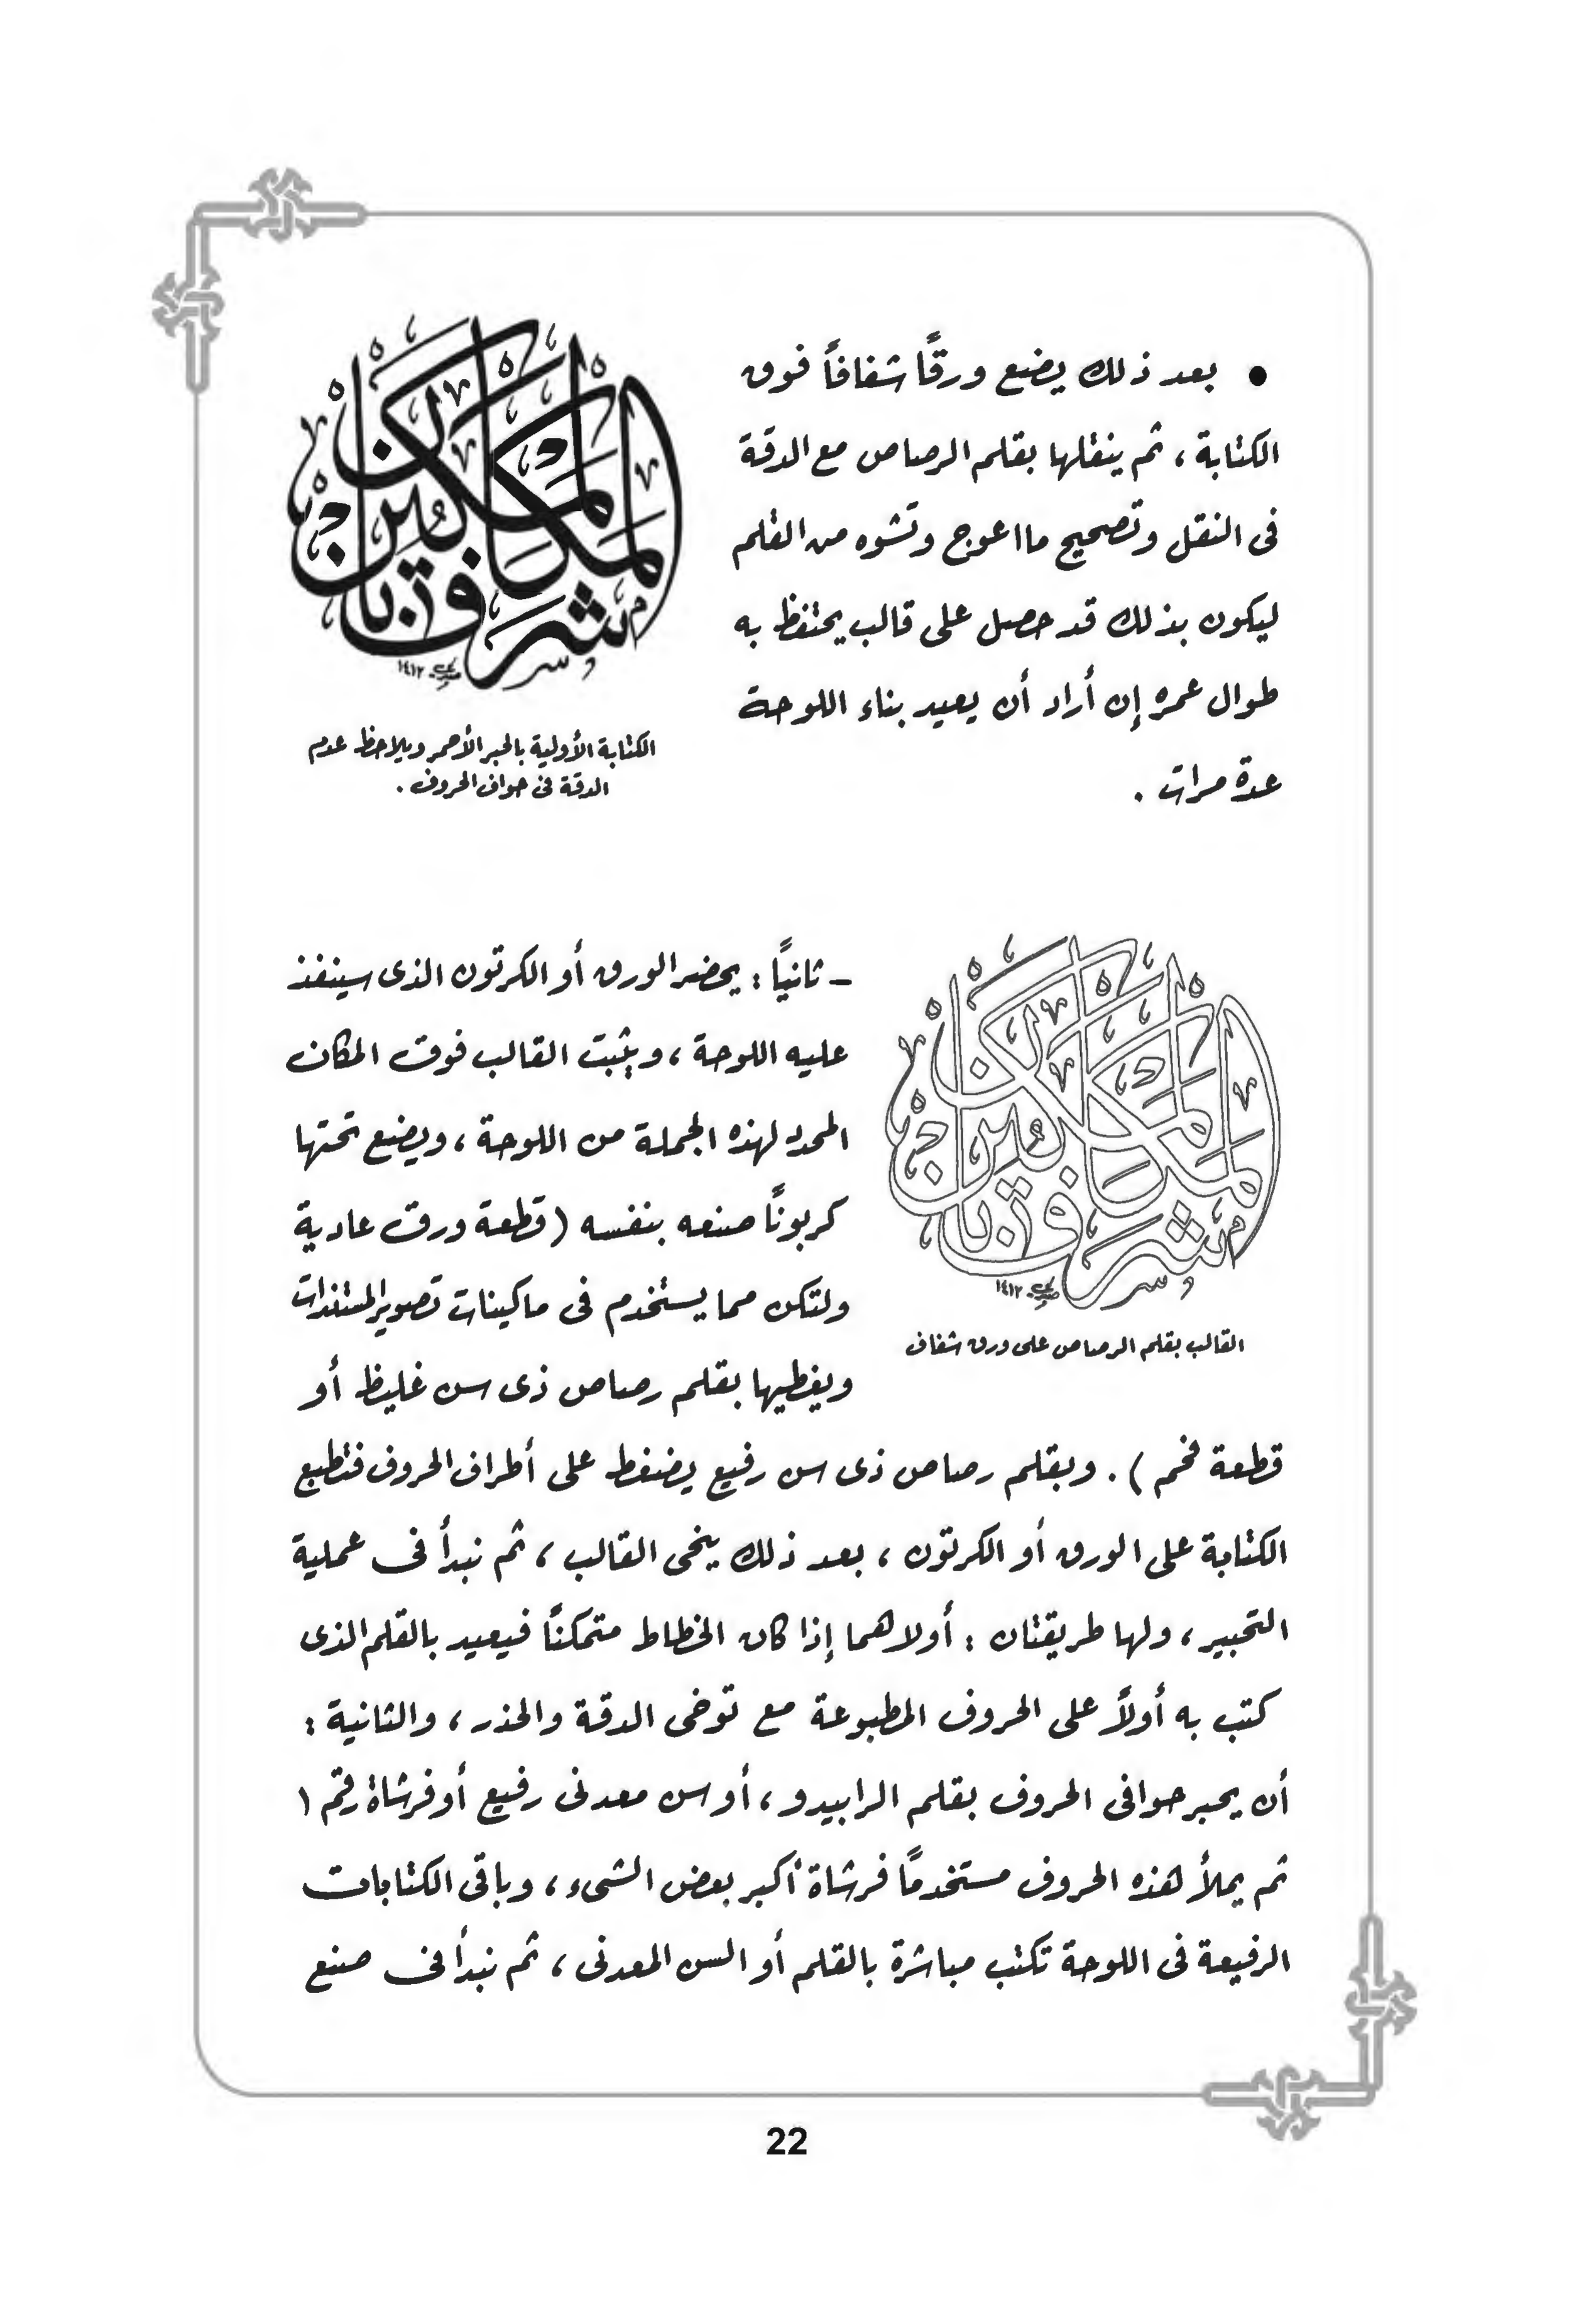 • بعد ذلك يضع ورقًا شفافاً فوق
الكتابة ، ثم ينقلها بقلم الرصاص مع الدقة
فى النقل وتصحيح ما اعوج وتشوه من القلم
ليكون بذلك قد حصل على قالب يحتفظ به
طوال عمره إن أراد أن يعيد بناء اللوحة
عدة مرات .
١٤١٢
الكتابة الأولية بالحبر الأحمر ويلاحظ عدم
الدقة فى حواف الحروف .
– ثانيًا : يحضر الورق أو الكرتون الذى سينفذ
عليه اللوحة ، ويثبت القالب فوق المكان
المحدد لهذه الجملة من اللوحة ، ويضع تحتها
كربونًا صنعه بنفسه ( قطعة ورق عادية
ولتكن مما يستخدم فى ماكينات تصوير المستندات
ويغطيها بقلم رصاص ذى سن غليظ أو
١٤١٢
القالب بقلم الرصاص على ورق شفاف
قطعة فحم ) . وبقلم رصاص ذى سن رفيع يضغط على أطراف الحروف فتطبع
الكتابة على الورق أو الكرتون ، بعد ذلك ينحى القالب ، ثم نبدأ فى عملية
التحبير ، ولها طريقتان : أولاهما إذا كان الخطاط متمكنًا فيعيد بالقلم الذى
كتب به أولاً على الحروف المطبوعة مع توخى الدقة والحذر ، والثانية :
أن يحبر حوافى الحروف بقلم الرابيدو ، أو سن معدنى رفيع أو فرشاة رقم ١
ثم يملأ هذه الحروف مستخدمًا فرشاة أكبر بعض الشىء ، وباقى الكتابات
الرفيعة فى اللوحة تكتب مباشرة بالقلم أو السن المعدنى ، ثم نبدأ فى صنع
22